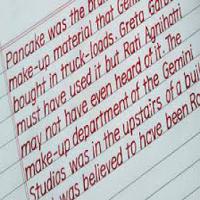 Pancake was the bra
make-up material that Gem
bought in truck-loads. Greta Garb
must have used it but Rati Agnihotri
may not have even heard of it. The
make-up department of the Gemini
Studios was in the upstairs of a buil
was believed to have been Ro